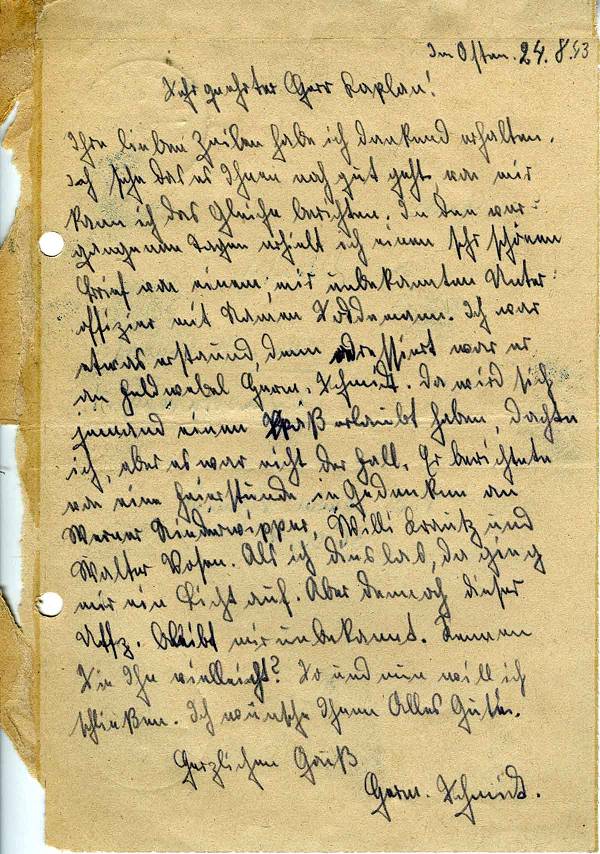 Im Osten. 24. 8. 43
Sehr geehrter Herr Kaplan!
Ihre lieben Zeilen habe ich dankend erhalten.
Ich sehe das es Ihnen noch gut geht, von mir
kann ich das Gleiche berichten. In den ver-
gangenen Tagen erhielt ich einen sehr schönen
Brief von einem, mir unbekannten Unter-
offizier mit Namen Loddemann. Ich war
etwas erstaund, denn adressiert war er
an Feldwebel Herm. Schmidt. Da wird sich
jemand einen Spaß erlaubt haben, dachte
ich, aber es war nicht der Fall. Er berichtete
von eine Feierstunde in Gedenken an
Werner Niederwipper, Willi Krautz und
Walter Vosen. Als ich dies las, da ging
mir ein Licht auf. Aber dennoch dieser
Uffz. bleibt mir unbekannt. Kennen
Sie Ihn vielleicht? So und nun will ich
schließen. Ich wünsche Ihnen Alles Gute.
Herzlichen Gruß
Herm. Schmidt.